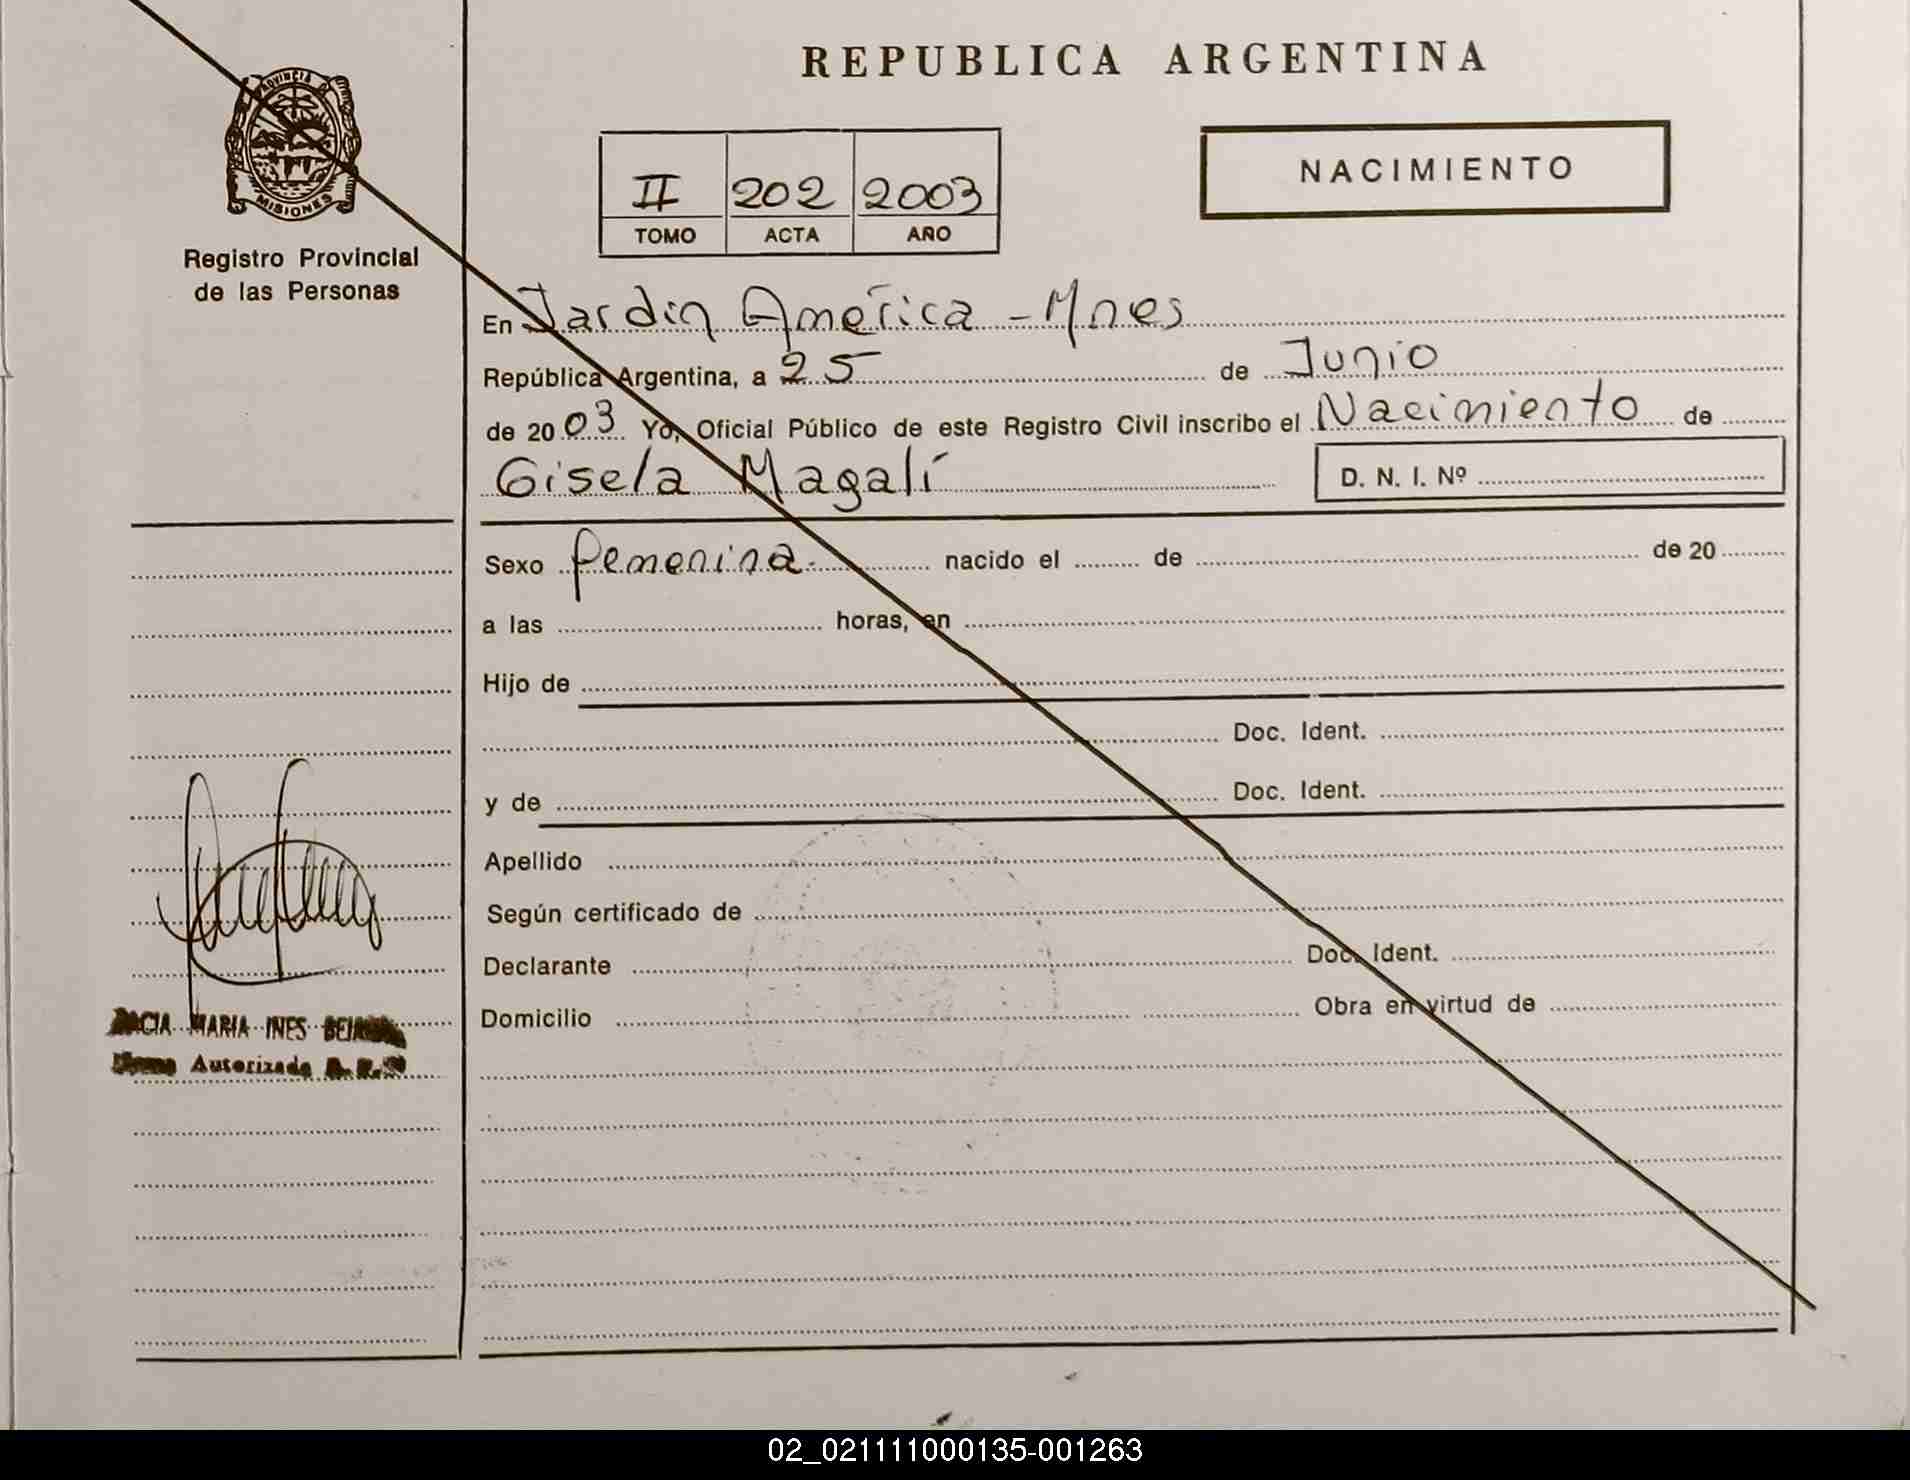 REPUBLICA ARGENTINA
PROVINCIA DE
MISIONES
Registro Provincial
de las Personas
NACIMIENTO
II 202 2003
TOMO ACTA AÑO
En Jardin América - Mnes
República Argentina, a 25 de Junio
de 2003 Yo, Oficial Público de este Registro Civil inscribo el Nacimiento de
Gisela Magalí D. N. I. Nº
Sexo femenina. nacido el de de 20
a las horas, en
Hijo de
Doc. Ident.
y de Doc. Ident.
Apellido
Según certificado de
Declarante Doc. Ident.
Domicilio Obra en virtud de
MARIA INES
Autorizada
02_021111000135-001263